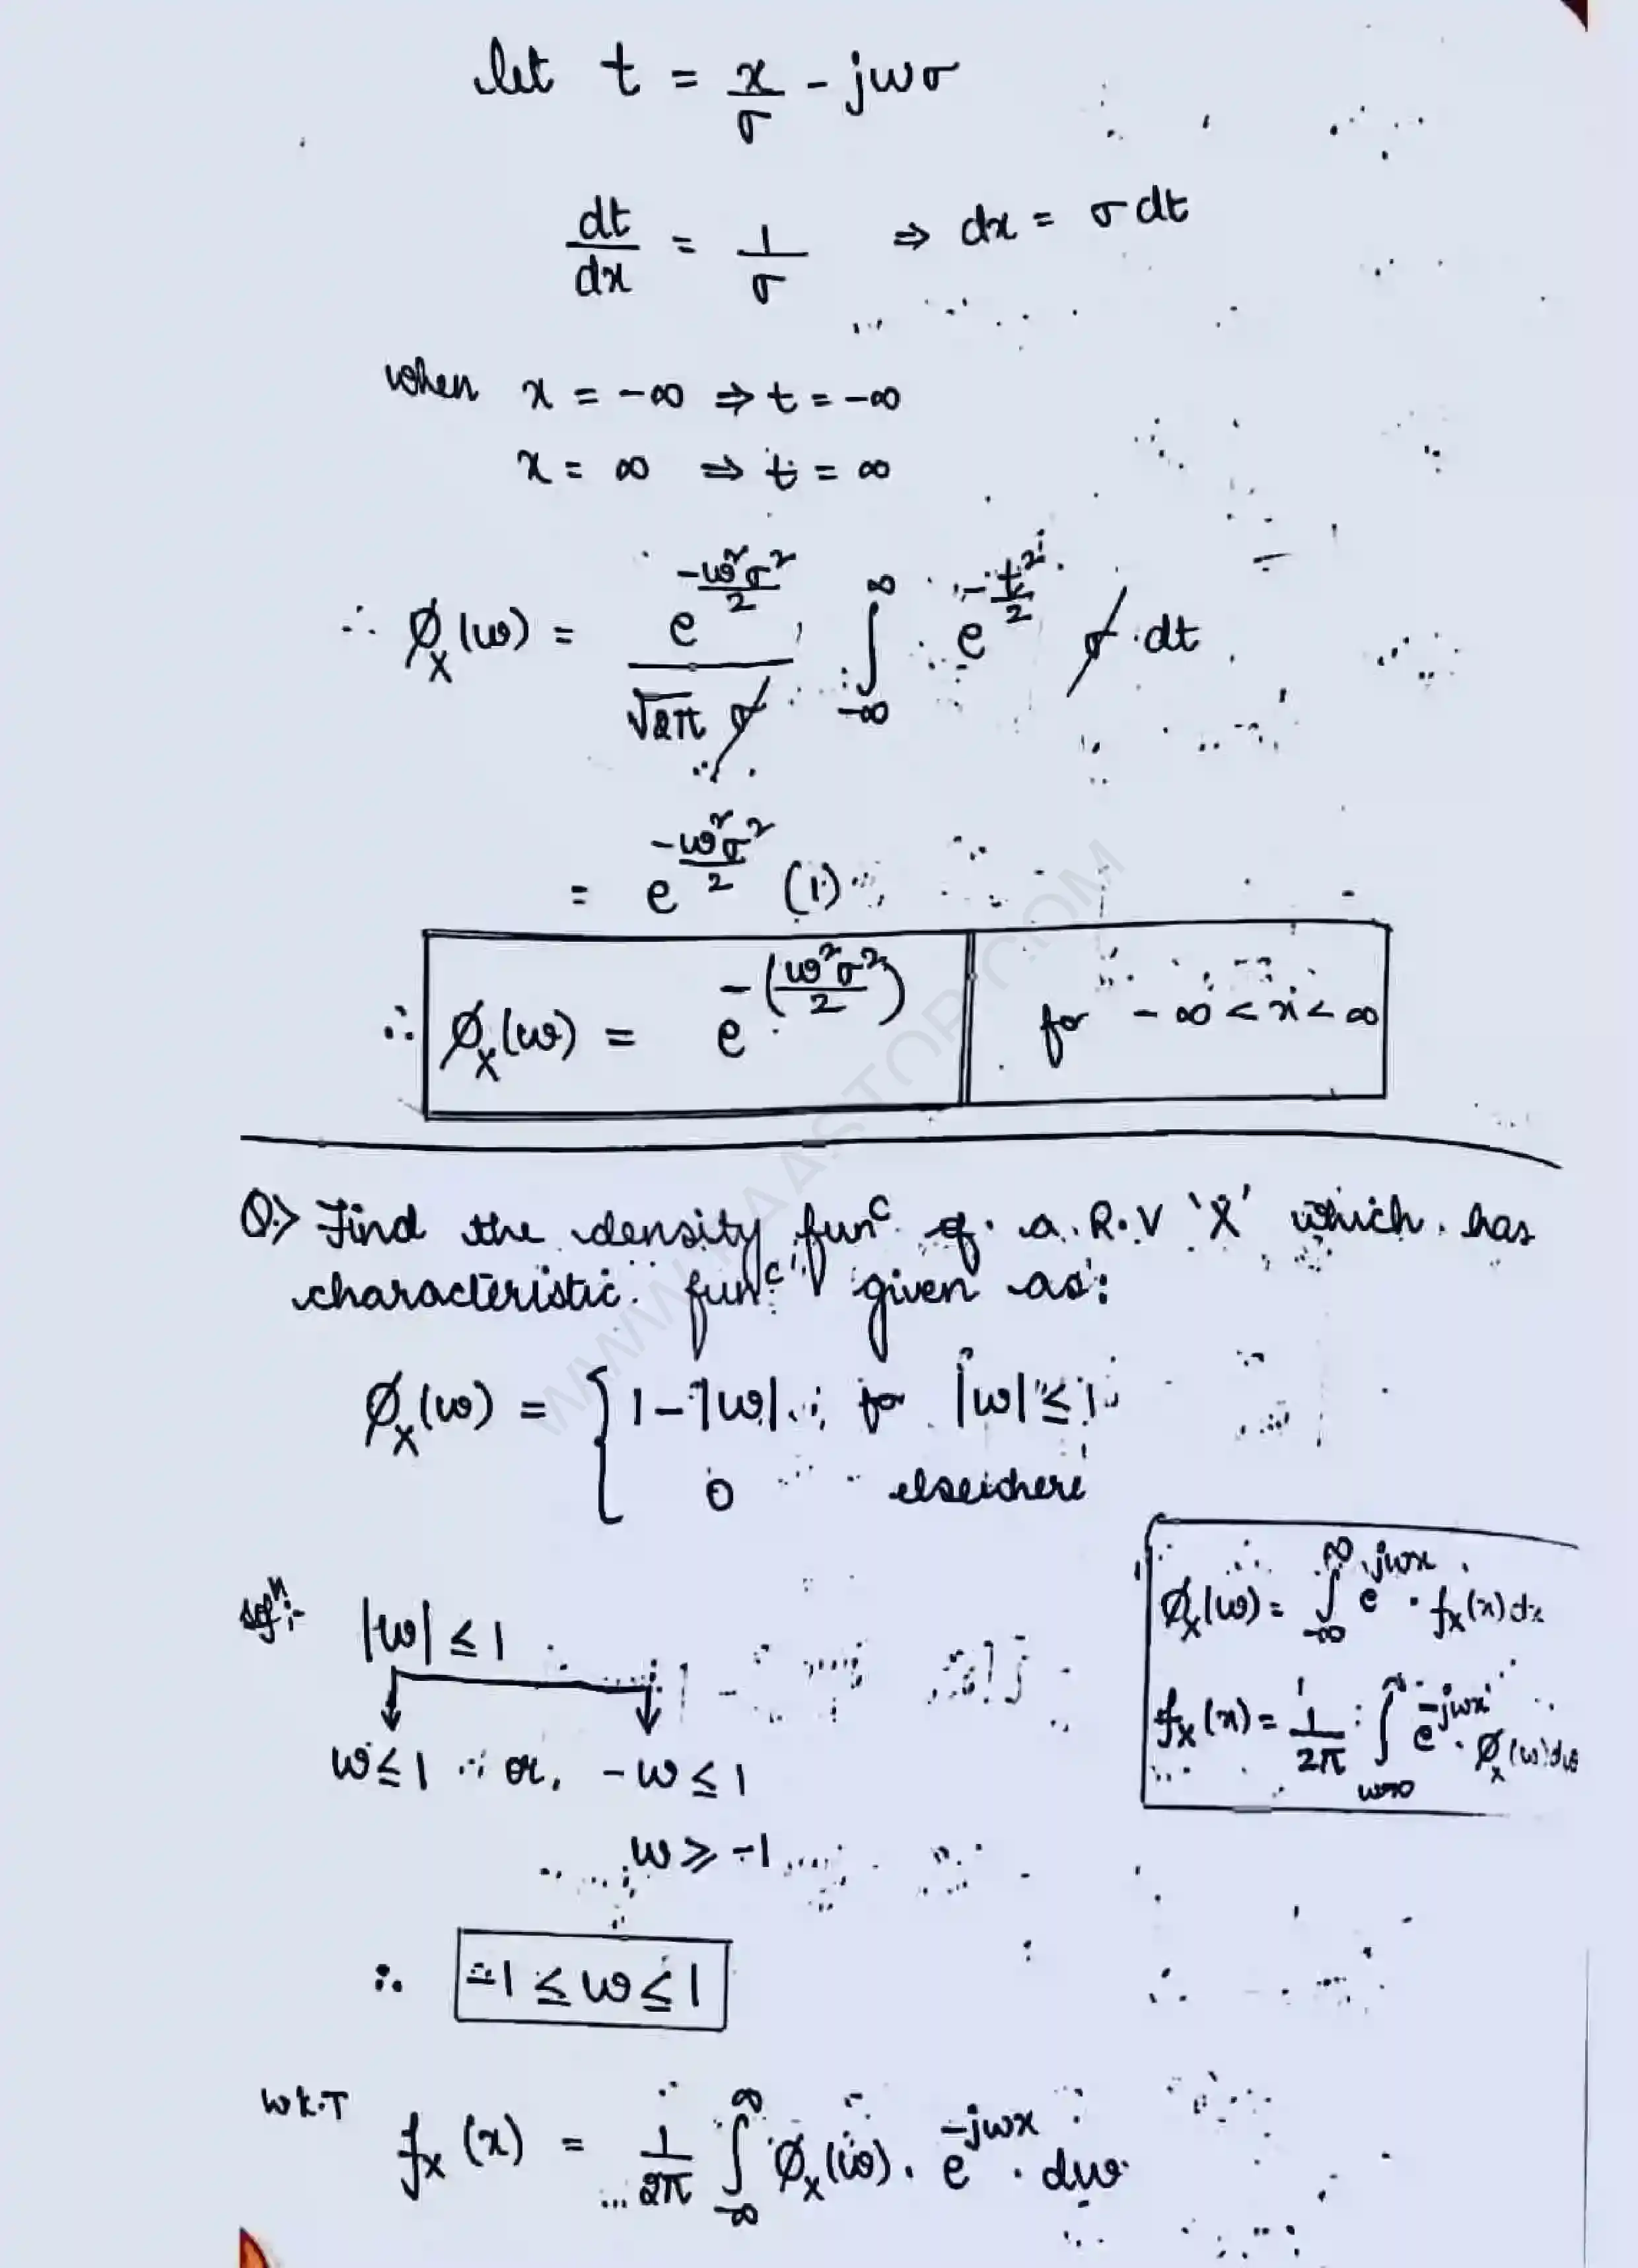 let t = x/σ - jωσ
dt/dx = 1/σ ⇒ dx = σ dt
when x = -∞ ⇒ t = -∞
x = ∞ ⇒ t = ∞
∴ ϕ_X(ω) = e^(-ω²σ²/2) / √2π σ ∫_{-∞}^{∞} e^(-t²/2) σ · dt
= e^(-ω²σ²/2) (1)
∴ ϕ_X(ω) = e^-(ω²σ²/2) for -∞ < x < ∞
Q.> Find the density funᶜ of a R.V 'X' which has
characteristic funᶜ given as:
ϕ_X(ω) = { 1-|ω| ; for |ω| ≤ 1
0 elsewhere
solⁿ:-
|ω| ≤ 1
ω ≤ 1 or, -ω ≤ 1
ω ≥ -1
∴ -1 ≤ ω ≤ 1
ϕ_X(ω) = ∫_{-∞}^{∞} e^{jωx} · f_X(x) dx
f_X(x) = 1/2π ∫ e^{-jωx} · ϕ_X(ω) dω
WK.T f_X(x) = 1/2π ∫_{-∞}^{∞} ϕ_X(ω) · e^{-jωx} · dω